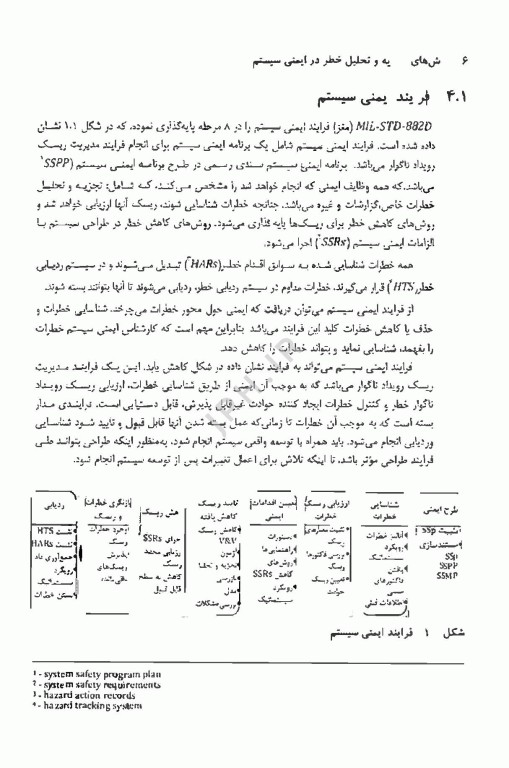 ۶ ش‌های یه و تحلیل خطر در ایمنی سیستم
۴.۱ فر یند یمنی سیستم
MIL-STD-882D (مغز) فرایند ایمنی سیستم را در ۸ مرحله پایه‌گذاری نموده، که در شکل ۱.۱ نشان
داده شده است. فرایند ایمنی سیستم شامل یک برنامه ایمنی سیستم برای انجام فرایند مدیریت ریسک
رویداد ناگوار می‌باشد. برنامه ایمنی سیستم سندی رسمی در طرح برنامه ایمنی سیستم (SSPP¹
می‌باشد،که همه وظایف ایمنی که انجام خواهد شد را مشخص می‌کند، که شامل: تجزیه و تحلیل
خطرات خاص،گزارشات و غیره می‌باشد. چنانچه خطرات شناسایی شوند، ریسک آنها ارزیابی خواهد شد و
روش‌های کاهش خطر برای ریسک‌ها پایه گذاری می‌شود. روش‌های کاهش خطر در طراحی سیستم با
الزامات ایمنی سیستم (SSRs²) اجرا می‌شود.
همه خطرات شناسایی شده به سوابق اقدام خطر(HARs³) تبدیل می‌شوند و در سیستم ردیابی
خطر(HTS⁴) قرار می‌گیرند. خطرات مداوم در سیستم ردیابی خطر، ردیابی می‌شوند تا آنها بتوانند بسته شوند.
از فرایند ایمنی سیستم می‌توان دریافت که ایمنی حول محور خطرات می‌چرخد. شناسایی خطرات و
حذف یا کاهش خطرات کلید این فرایند می‌باشد. بنابراین مهم است که کارشناس ایمنی سیستم خطرات
را بفهمد، شناسایی نماید و بتواند خطرات را کاهش دهد.
فرایند ایمنی سیستم می‌تواند به فرایند نشان داده در شکل کاهش یابد. این یک فرایند مدیریت
ریسک رویداد ناگوار می‌باشد که به موجب آن ایمنی از طریق شناسایی خطرات، ارزیابی ریسک رویداد
ناگوار خطر و کنترل خطرات ایجاد کننده حوادث غیرقابل پذیرش، قابل دستیابی است. فرایندی مدار
بسته است که به موجب آن خطرات تا زمانی‌که عمل بسته شدن آنها قابل قبول و تایید شود شناسایی
وردیابی انجام می‌شود. باید همراه با توسعه واقعی سیستم انجام شود، به‌منظور اینکه طراحی بتوانند طی
فرایند طراحی مؤثر باشد، تا اینکه تلاش برای اعمال تغییرات پس از توسعه سیستم انجام شود.
طرح ایمنی
SSp
مستندسازی
SSp
SSPP
SSMP
شناسایی
خطرات
آنالیز خطرات
رویکرد
سیستماتیک
یافتن
فاکتورهای
اطلاعات قبلی
ارزیابی ریسک
خطرات
ریسک
ریسک
تعیین ریسک
حوادث
تعیین اقدامات
ایمنی
دستورات
راهنمایی‌ها
روش‌های
کاهش SSRs
رویکرد
سیستماتیک
هش ریسک
اجرای SSRs
ریسک
کاهش به سطح
قابل قبول
تایید ریسک
کاهش یافته
کاهش ریسک
V&V
آزمون
تجزیه و تحلیل
بازرسی
مدل
بررسی مشکلات
بازنگری خطرات
و ریسک
ریسک
پذیرش
ریسک‌های
باقی‌مانده
ردیابی
ثبت HTS
ثبت HARs
جمع‌آوری داده
رویکرد
سیستماتیک
بستن خطرات
شکل ۱ فرایند ایمنی سیستم
¹ - system safety program plan
² - system safety requirements
³ - hazard action records
⁴ - hazard tracking system